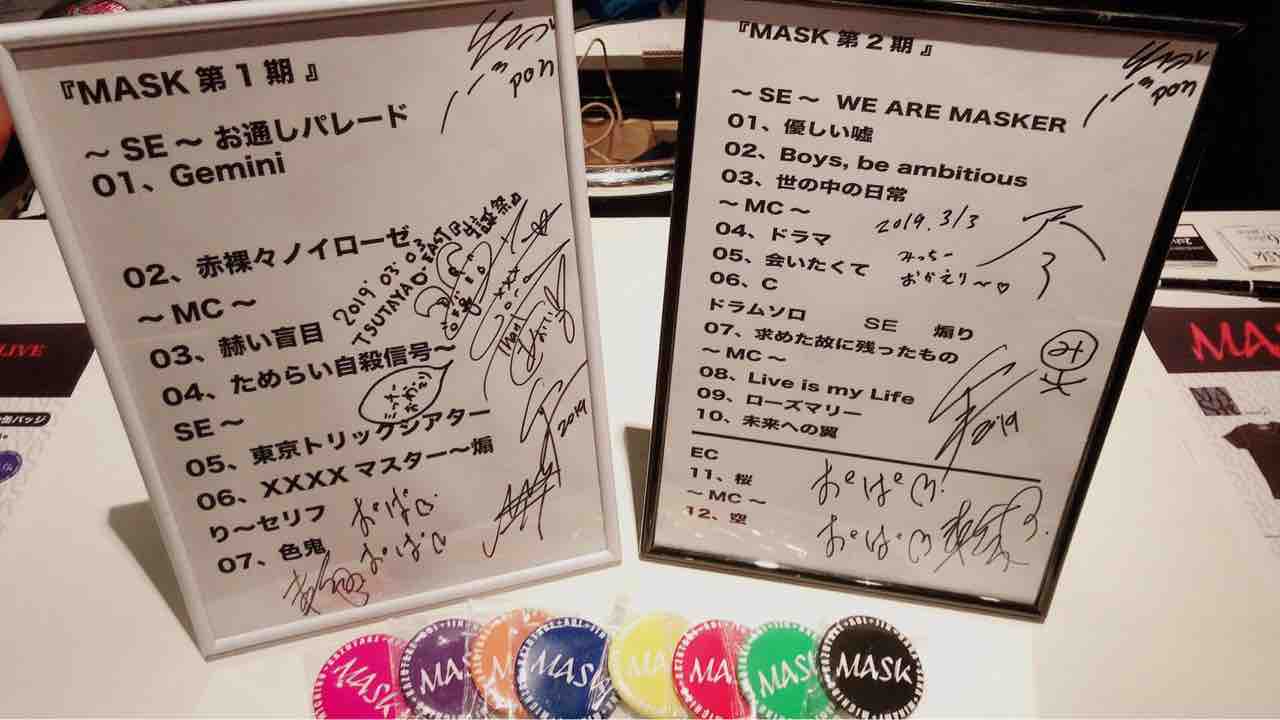 『MASK 第1期 』
～ SE ～ お通しパレード
01、Gemini
02、赤裸々ノイローゼ
～ MC ～
03、赫い盲目
04、ためらい自殺信号～
SE ～
05、東京トリックシアター
06、XXXX マスター～煽
り～セリフ
07、色鬼
pon
2019・03・03
TSUTAYA O-EAST『生誕祭』
みっちーおかえり
2019
お°ぱ°し
お°ぱ°し
『MASK 第2期 』
～ SE ～ WE ARE MASKER
01、優しい嘘
02、Boys, be ambitious
03、世の中の日常
～ MC ～
04、ドラマ
05、会いたくて
06、C
ドラムソロ SE 煽り
07、求めた故に残ったもの
～ MC ～
08、Live is my Life
09、ローズマリー
10、未来への翼
EC
11、桜
～ MC ～
12、空
pon
2019.3/3
みっちー
おかえり～♡
2019
お°ぱ°し
お°ぱ°し
LIVE
缶バッジ
MAS
MASK
MASK
MASK
MA
MASK
MASK
MASK